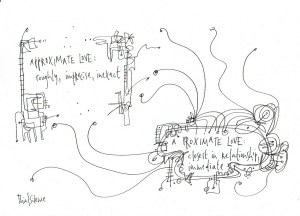 APPROXIMATE LOVE:
roughly, imprecise, inexact
A PROXIMATE LOVE:
closest in relationship,
immediate